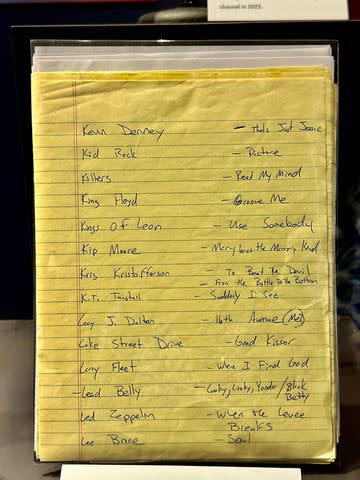 channel in 2022.
Kevin Denney – Thats Just Jessie
Kid Rock – Picture
Killers – Read My Mind
King Floyd – Groove Me
Kings Of Leon – Use Somebody
Kip Moore – Mary was the Marrying Kind
Kris Kristofferson – To Beat the Devil
– From the Bottle To the Bottom
K.T. Tunstall – Suddenly I See
Lacy J. Dalton – 16th Avenue (Me)
Lake Street Drive – Good Kisser
Larry Fleet – Where I Find God
– Lead Belly – Looky, Looky, Yonder / Black Betty
Led Zeppelin – When the Levee
Breaks
Lee Brice – Soul